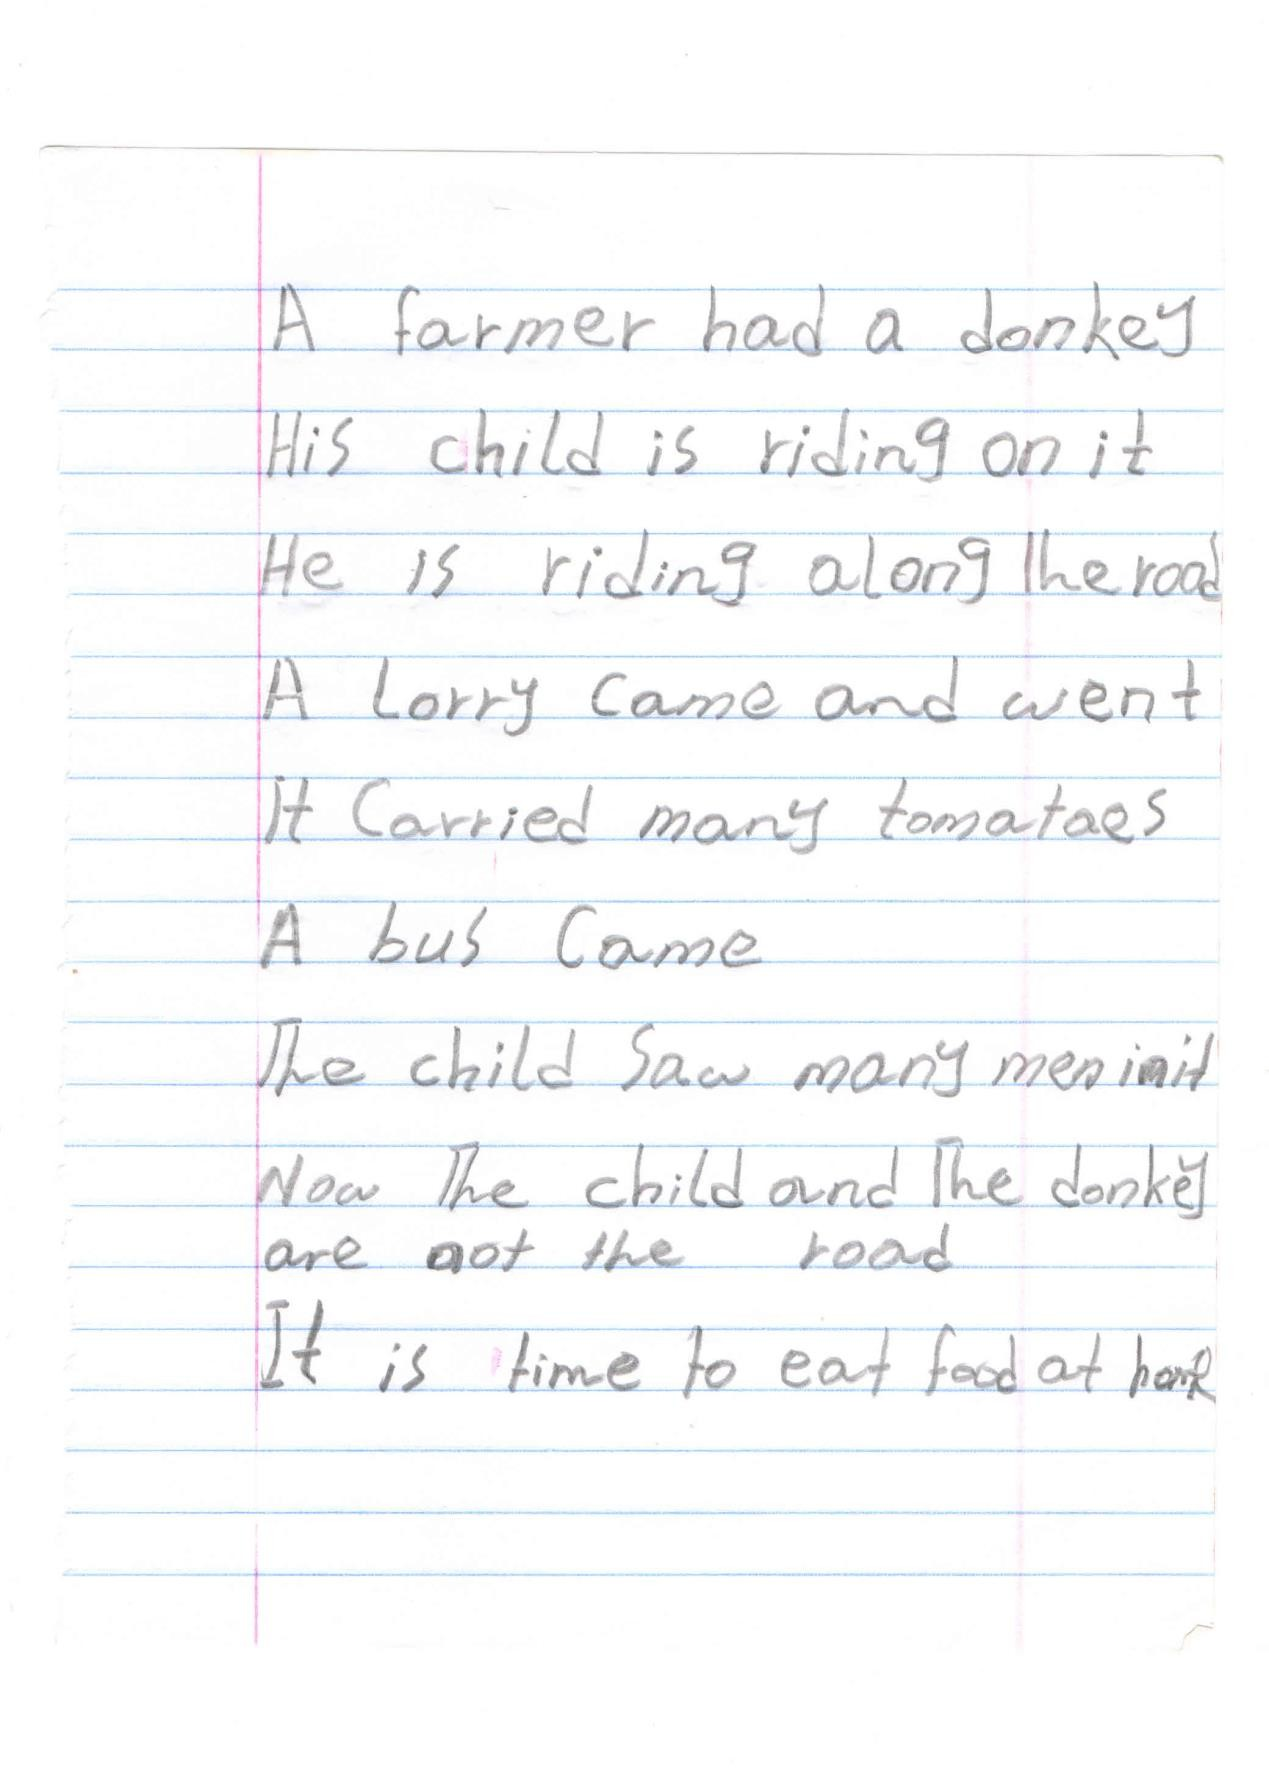 A farmer had a donkey
His child is riding on it
He is riding along the road
A Lorry Came and went
it Carried many tomataes
A bus Came
The child Saw many men in it
Now The child and The donkey
are not the road
It is time to eat food at home